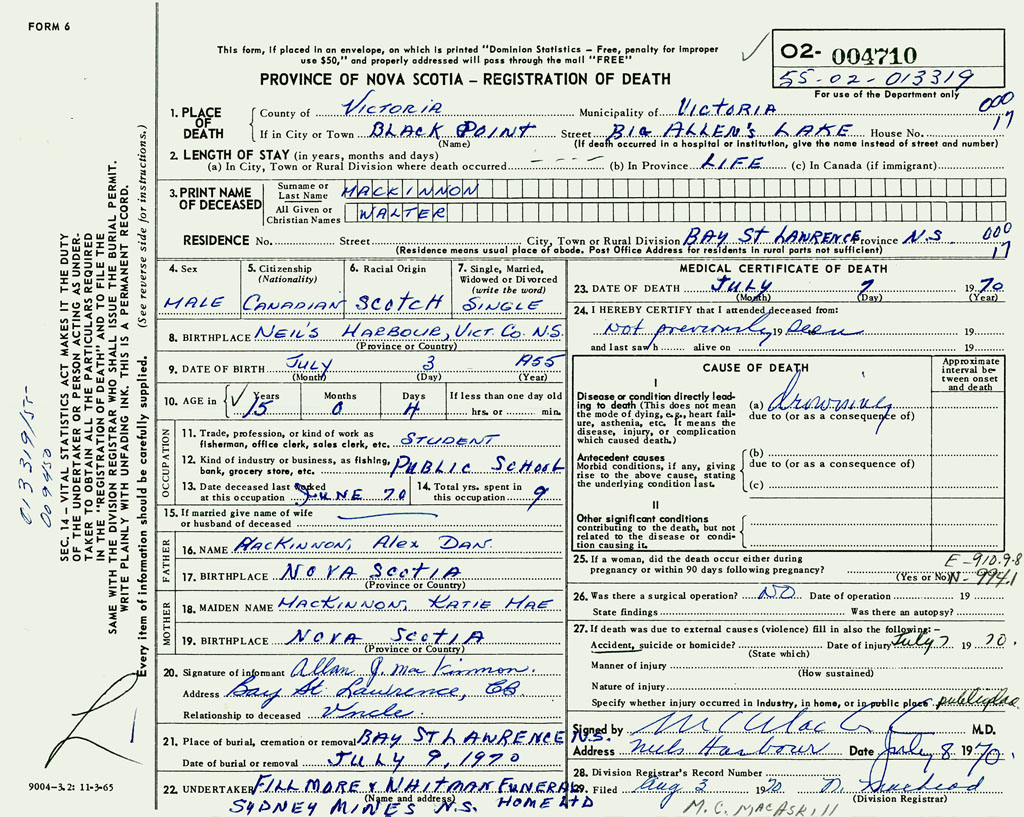 FORM 6
This form, if placed in an envelope, on which is printed "Dominion Statistics – Free, penalty for improper
use $50," and properly addressed will pass through the mail "FREE"
PROVINCE OF NOVA SCOTIA – REGISTRATION OF DEATH
02- 004710
55-02-013319
For use of the Department only
000
17
1. PLACE OF DEATH
County of VICTORIA Municipality of VICTORIA
If in City or Town BLACK POINT Street BIG ALLEN'S LAKE House No.
(Name) (If death occurred in a hospital or institution, give the name instead of street and number)
2. LENGTH OF STAY (in years, months and days)
(a) In City, Town or Rural Division where death occurred - - - - (b) In Province LIFE (c) In Canada (if immigrant)
3. PRINT NAME OF DECEASED
Surname or Last Name MACKINNON
All Given or Christian Names WALTER
RESIDENCE No. Street City, Town or Rural Division BAY ST LAWRENCE Province N.S 000
(Residence means usual place of abode. Post Office Address for residents in rural parts not sufficient) 17
4. Sex MALE
5. Citizenship (Nationality) CANADIAN
6. Racial Origin SCOTCH
7. Single, Married, Widowed or Divorced (write the word) SINGLE
8. BIRTHPLACE NEIL'S HARBOUR, VICT. CO. N.S.
(Province or Country)
9. DATE OF BIRTH JULY 3 1955
(Month) (Day) (Year)
10. AGE in Years 15 Months 0 Days 4 If less than one day old hrs. or min.
OCCUPATION
11. Trade, profession, or kind of work as
fisherman, office clerk, sales clerk, etc. STUDENT
12. Kind of industry or business, as fishing,
bank, grocery store, etc. PUBLIC SCHOOL
13. Date deceased last worked at this occupation JUNE 70
14. Total yrs. spent in this occupation 9
15. If married give name of wife
or husband of deceased
FATHER
16. NAME MACKINNON, ALEX DAN.
17. BIRTHPLACE NOVA SCOTIA
(Province or Country)
MOTHER
18. MAIDEN NAME MACKINNON, KATIE MAE
19. BIRTHPLACE NOVA SCOTIA
(Province or Country)
20. Signature of informant Allan J. MacKinnon.
Address Bay St. Lawrence, CB
Relationship to deceased Uncle.
21. Place of burial, cremation or removal BAY ST LAWRENCE N.S.
Date of burial or removal JULY 9, 1970
22. UNDERTAKER FILLMORE & WHITMAN FUNERAL
(Name and address) HOME LTD
SYDNEY MINES N.S.
MEDICAL CERTIFICATE OF DEATH
23. DATE OF DEATH JULY 7 1970
(Month) (Day) (Year)
24. I HEREBY CERTIFY that I attended deceased from:
Not previously 19 seen 19
and last saw h alive on 19
CAUSE OF DEATH
Approximate interval between onset and death
I
Disease or condition directly leading
to death (This does not mean
the mode of dying, e.g., heart failure,
asthenia, etc. It means the
disease, injury, or complication
which caused death.)
(a) drowning
due to (or as a consequence of)
Antecedent causes
Morbid conditions, if any, giving
rise to the above cause, stating
the underlying condition last.
(b)
due to (or as a consequence of)
(c)
II
Other significant conditions
contributing to the death, but not
related to the disease or condition
causing it.
25. If a woman, did the death occur either during
pregnancy or within 90 days following pregnancy?
(Yes or No)
E-910.9-8
N-994.1
26. Was there a surgical operation? NO Date of operation 19
State findings Was there an autopsy?
27. If death was due to external causes (violence) fill in also the following:–
Accident, suicide or homicide? Date of injury July 7 1970.
(State which)
Manner of injury
(How sustained)
Nature of injury
Specify whether injury occurred in industry, in home, or in public place public place
Signed by M.D.
Address Neils Harbour Date July 8 1970.
28. Division Registrar's Record Number
29. Filed Aug 3 1970
(Division Registrar)
M. C. MACASKILL
9004-3.2: 11-3-65
SEC. 14 – VITAL STATISTICS ACT MAKES IT THE DUTY
OF THE UNDERTAKER OR PERSON ACTING AS UNDERTAKER
TO OBTAIN ALL THE PARTICULARS REQUIRED
IN THE "REGISTRATION OF DEATH" AND TO FILE THE
SAME WITH THE DIVISION REGISTRAR WHO SHALL ISSUE THE BURIAL PERMIT.
WRITE PLAINLY WITH UNFADING INK. THIS IS A PERMANENT RECORD.
Every item of information should be carefully supplied. (See reverse side for instructions.)